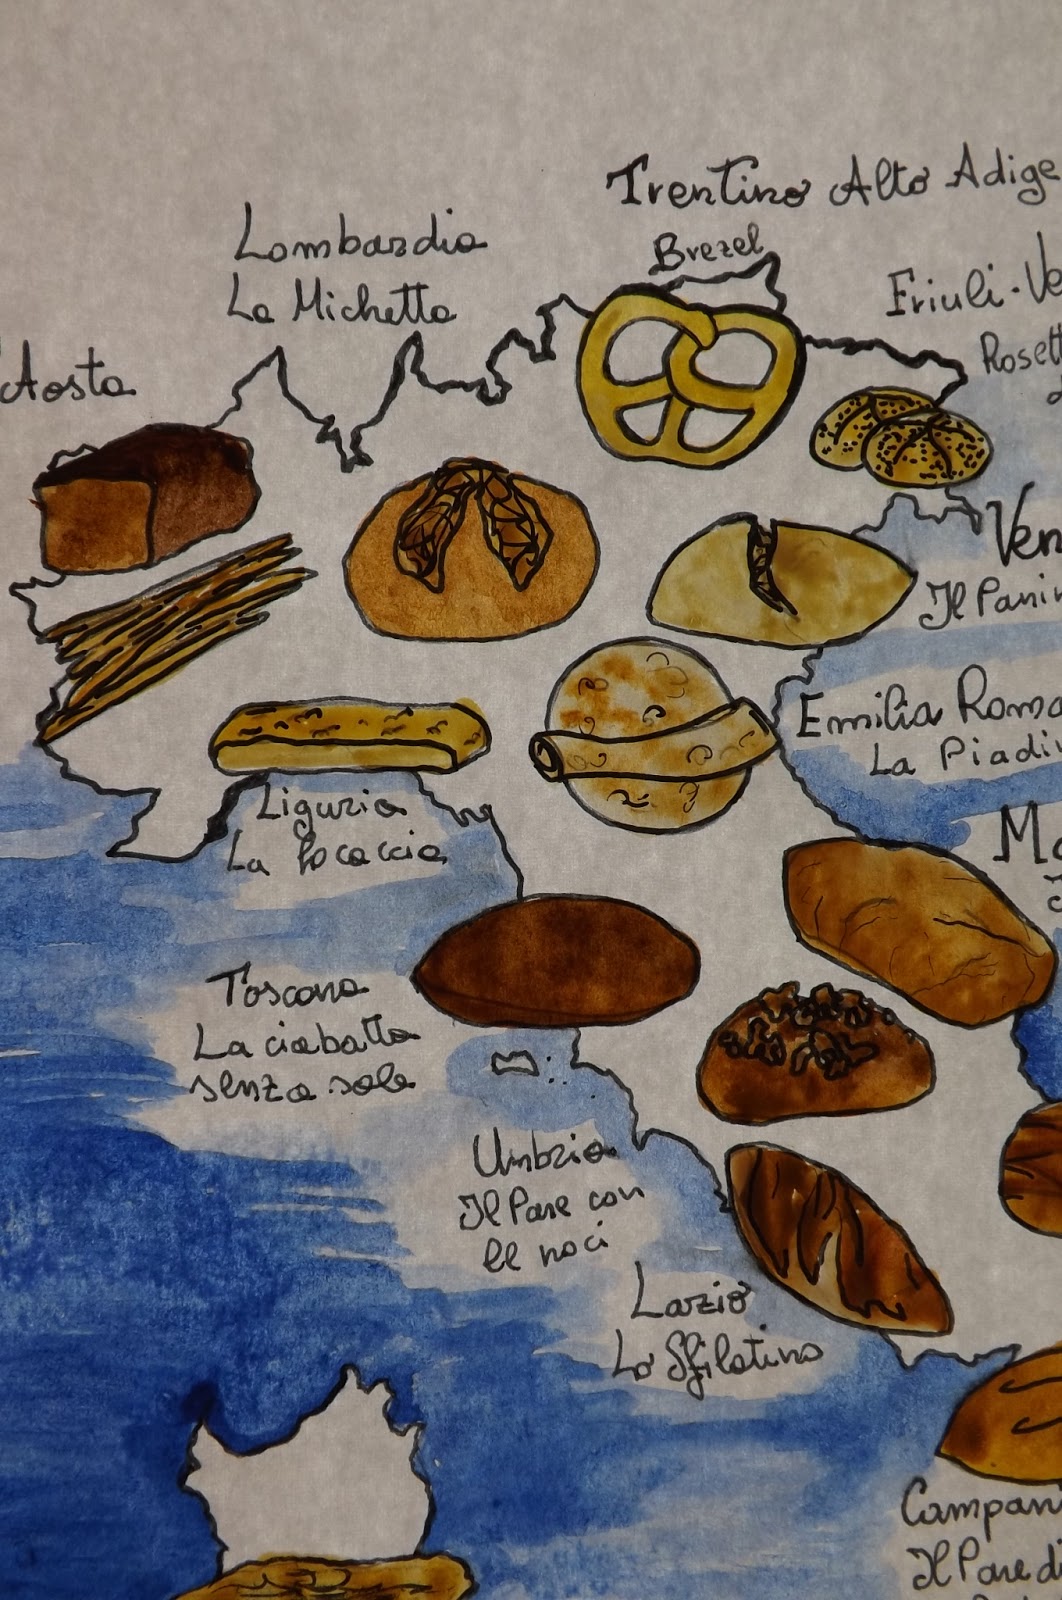 Trentino Alto Adige
Brezel
Lombardia
La Michetta
Friuli-Ve
Rosett
Aosta
Ven
Il Panin
Emilia Roma
La Piadin
Liguria
La focaccia
Ma
Toscana
La ciabatta
senza sale
Umbria
Il Pane con
le noci
Lazio
Lo Sfilatino
Campan
Il Pane di